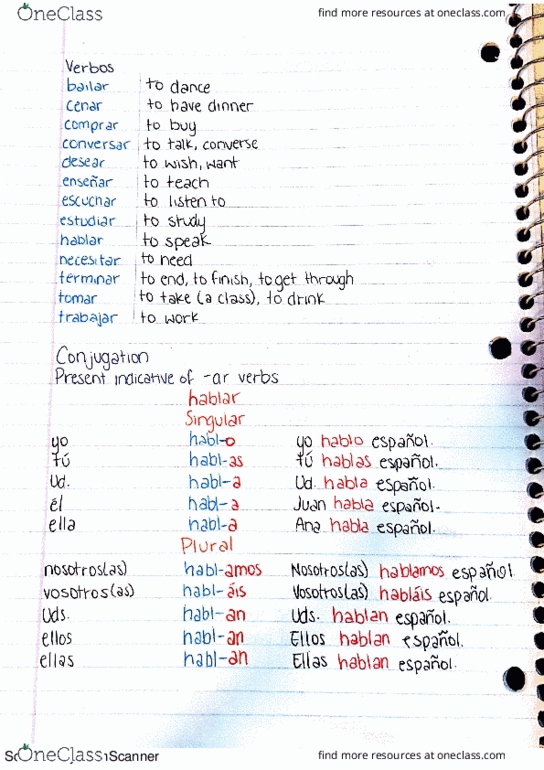 OneClass find more resources at oneclass.com
Verbos
bailar to dance
cenar to have dinner
comprar to buy
conversar to talk, converse
desear to wish, want
enseñar to teach
escuchar to listen to
estudiar to study
hablar to speak
necesitar to need
terminar to end, to finish, to get through
tomar to take (a class), to drink
trabajar to work
Conjugation
Present indicative of -ar verbs
hablar
Singular
yo habl-o yo hablo español.
tú habl-as tú hablas español.
Ud. habl-a Ud. habla español.
él habl-a Juan habla español.
ella habl-a Ana habla español.
Plural
nosotros(as) habl-amos Nosotros(as) hablamos español
vosotros(as) habl-áis Vosotros(as) habláis español.
Uds. habl-an Uds. hablan español.
ellos habl-an Ellos hablan español.
ellas habl-an Ellas hablan español.
OneClass Scanner find more resources at oneclass.com